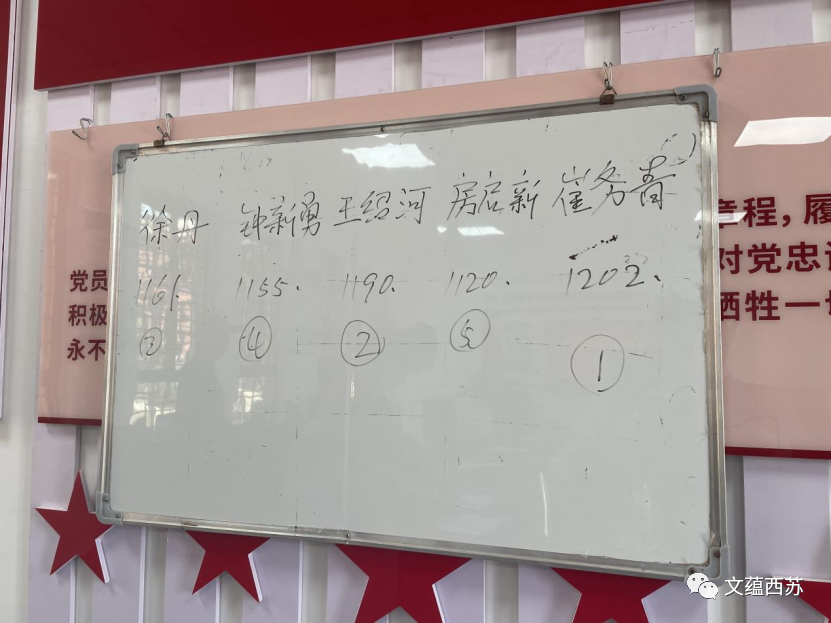 徐丹 钟新勇 王绍河 房启新 崔务青
1161. 1155. 1190. 1120. 1202.
④ ② ⑤ ①
党员
积极
永不
章程，履
对党忠诚
牺牲一切
文蕴西苏